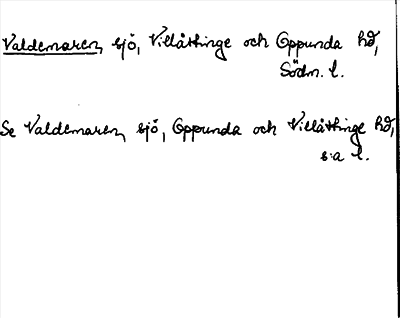 Valdemaren, sjö, Villåttinge och Oppunda hd,
Södm. l.
Se Valdemaren, sjö, Oppunda och Villåttinge hd,
s:a l.